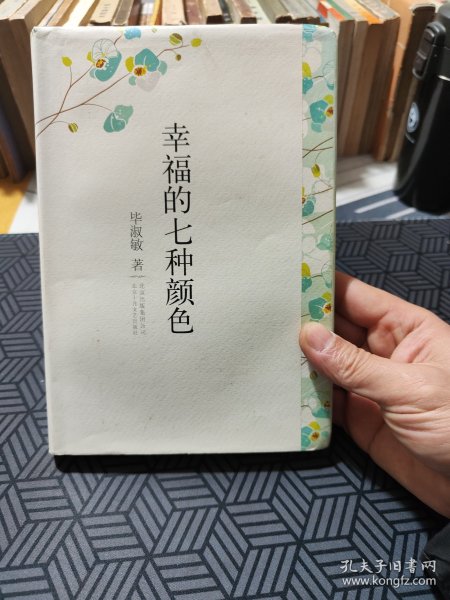 幸福的七种颜色
毕淑敏 著
北京出版集团公司
北京十月文艺出版社
孔夫子旧书网
www.kongfz.com